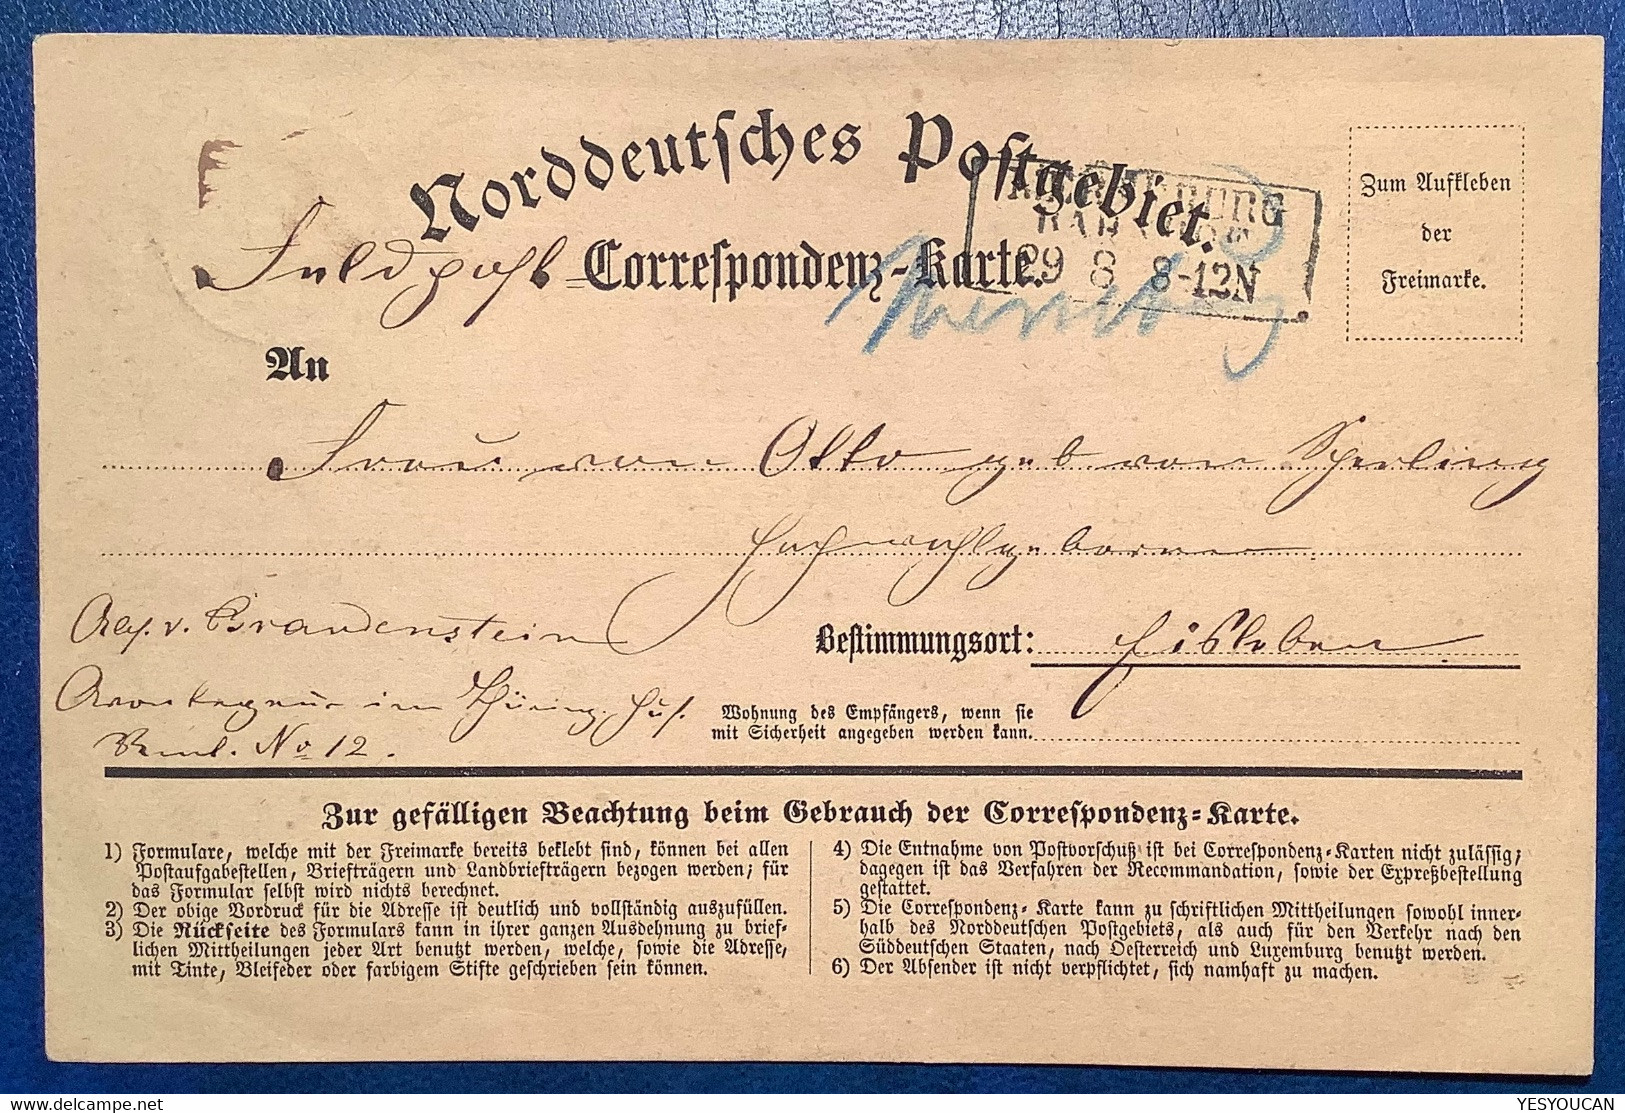 Norddeutsches Postgebiet.
Feldpost-Correspondenz-Karte.
29 8 8-12N
Zum Aufkleben
der
Freimarke.
An
Frau von Otto geb von Sperling
Hochwohlgeboren
v. Brandenstein
Bestimmungsort: Eisleben
im Thüring. Hus.
Wohnung des Empfängers, wenn sie
mit Sicherheit angegeben werden kann.
No 12.
Zur gefälligen Beachtung beim Gebrauch der Correspondenz-Karte.
1) Formulare, welche mit der Freimarke bereits beklebt sind, können bei allen
Postaufgabestellen, Briefträgern und Landbriefträgern bezogen werden; für
das Formular selbst wird nichts berechnet.
2) Der obige Vordruck für die Adresse ist deutlich und vollständig auszufüllen.
3) Die Rückseite des Formulars kann in ihrer ganzen Ausdehnung zu brief-
lichen Mittheilungen jeder Art benutzt werden, welche, sowie die Adresse,
mit Tinte, Bleifeder oder farbigem Stifte geschrieben sein können.
4) Die Entnahme von Postvorschuß ist bei Correspondenz-Karten nicht zulässig;
dagegen ist das Verfahren der Recommandation, sowie der Expreßbestellung
gestattet.
5) Die Correspondenz-Karte kann zu schriftlichen Mittheilungen sowohl inner-
halb des Norddeutschen Postgebiets, als auch für den Verkehr nach den
Süddeutschen Staaten, nach Oesterreich und Luxemburg benutzt werden.
6) Der Absender ist nicht verpflichtet, sich namhaft zu machen.
YESYOUCAN